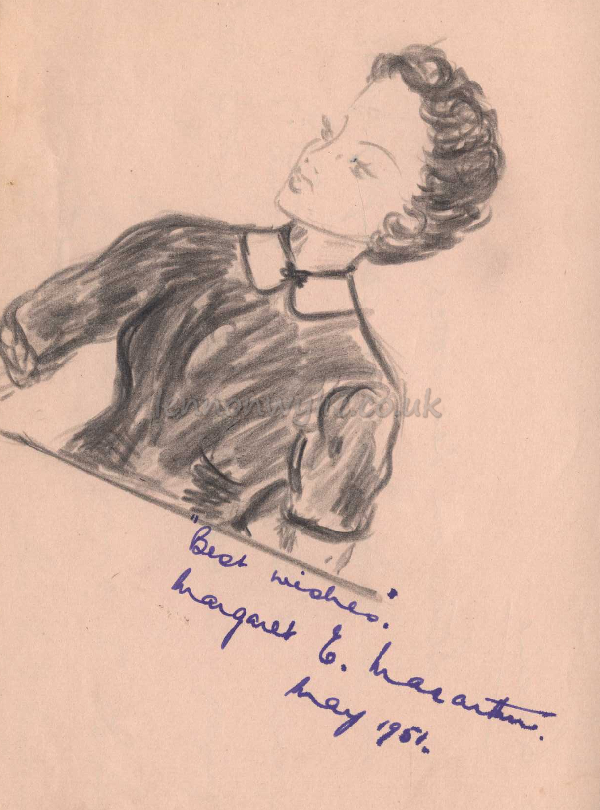 "Best wishes."
Margaret E. Macarthur.
May 1951.